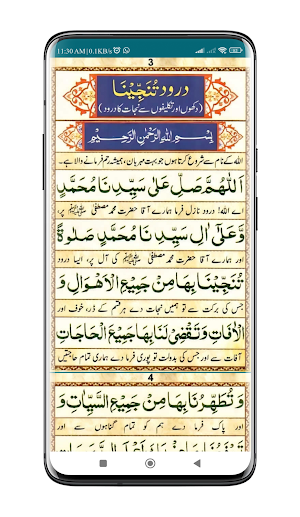 11:30 AM | 0.1KB/s
3
درود تُنَجِّیْنَا
(دکھوں اور تکلیفوں سے نجات کا درود)
بِسْمِ اللّٰهِ الرَّحْمٰنِ الرَّحِیْمِ
اللہ کے نام سے شروع کرتا ہوں جو بہت مہربان، ہمیشہ رحم فرمانے والا ہے۔
اَللّٰهُمَّ صَلِّ عَلٰی سَیِّدِنَا مُحَمَّدٍ
اے اللہ! درود نازل فرما ہمارے آقا حضرت محمد مصطفیٰ ﷺ پر،
وَّعَلٰۤی اٰلِ سَیِّدِنَا مُحَمَّدٍ صَلٰوةً
اور ہمارے آقا حضرت محمد مصطفیٰ ﷺ کی آل پر، ایسا درود
تُنَجِّیْنَا بِهَا مِنْ جَمِیْعِ الْاَهْوَالِ وَ
جس کی برکت سے تو ہمیں نجات دے ہر قسم کے ڈر، خوف اور
الْاٰفَاتِ وَتَقْضِیْ لَنَا بِهَا جَمِیْعَ الْحَاجَاتِ
آفات سے اور جس کی بدولت تو پوری فرما دے ہماری تمام حاجتیں
4
وَ تُطَهِّرُنَا بِهَا مِنْ جَمِیْعِ السَّیِّاٰتِ وَ
اور پاک فرما دے ہم کو تمام گناہوں سے اور